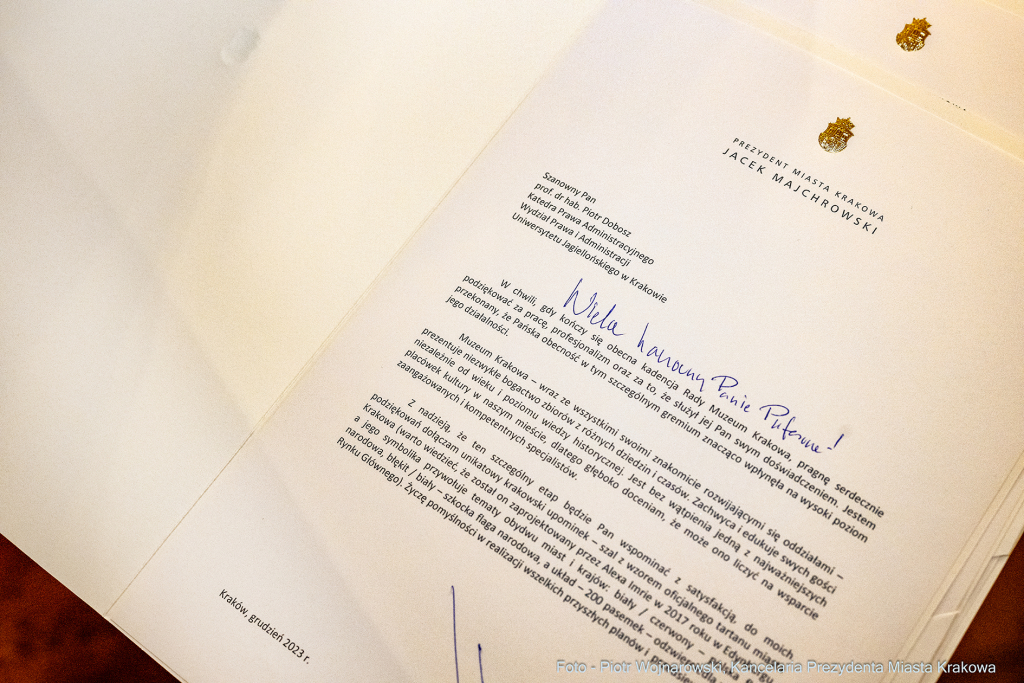 PREZYDENT MIASTA KRAKOWA
JACEK MAJCHROWSKI
Szanowny Pan
prof. dr hab. Piotr Dobosz
Katedra Prawa Administracyjnego
Wydział Prawa i Administracji
Uniwersytetu Jagiellońskiego w Krakowie
Wielce Szanowny Panie Profesorze!
W chwili, gdy kończy się obecna kadencja Rady Muzeum Krakowa, pragnę serdecznie
podziękować za pracę, profesjonalizm oraz za to, że służył jej Pan swym doświadczeniem. Jestem
przekonany, że Pańska obecność w tym szczególnym gremium znacząco wpłynęła na wysoki poziom
jego działalności.
Muzeum Krakowa – wraz ze wszystkimi swoimi znakomicie rozwijającymi się oddziałami –
prezentuje niezwykłe bogactwo zbiorów z różnych dziedzin i czasów. Zachwyca i edukuje swych gości
niezależnie od wieku i poziomu wiedzy historycznej. Jest bez wątpienia jedną z najważniejszych
placówek kultury w naszym mieście, dlatego głęboko doceniam, że może ono liczyć na wsparcie
zaangażowanych i kompetentnych specjalistów.
Z nadzieją, że ten szczególny etap będzie Pan wspominać z satysfakcją, do moich
podziękowań dołączam unikatowy krakowski upominek – szal z wzorem oficjalnego tartanu
Krakowa (warto wiedzieć, że został on zaprojektowany przez Alexa Imrie w 2017 roku w
a jego symbolika przywołuje tematy obydwu miast i krajów: biały / czerwony –
narodowa, błękit / biały – szkocka flaga narodowa, a układ – 200 pasemek –
Rynku Głównego). Życzę pomyślności w realizacji wszelkich przyszłych planów i
Kraków, grudzień 2023 r.
Foto - Piotr Wojnarowski, Kancelaria Prezydenta Miasta Krakowa